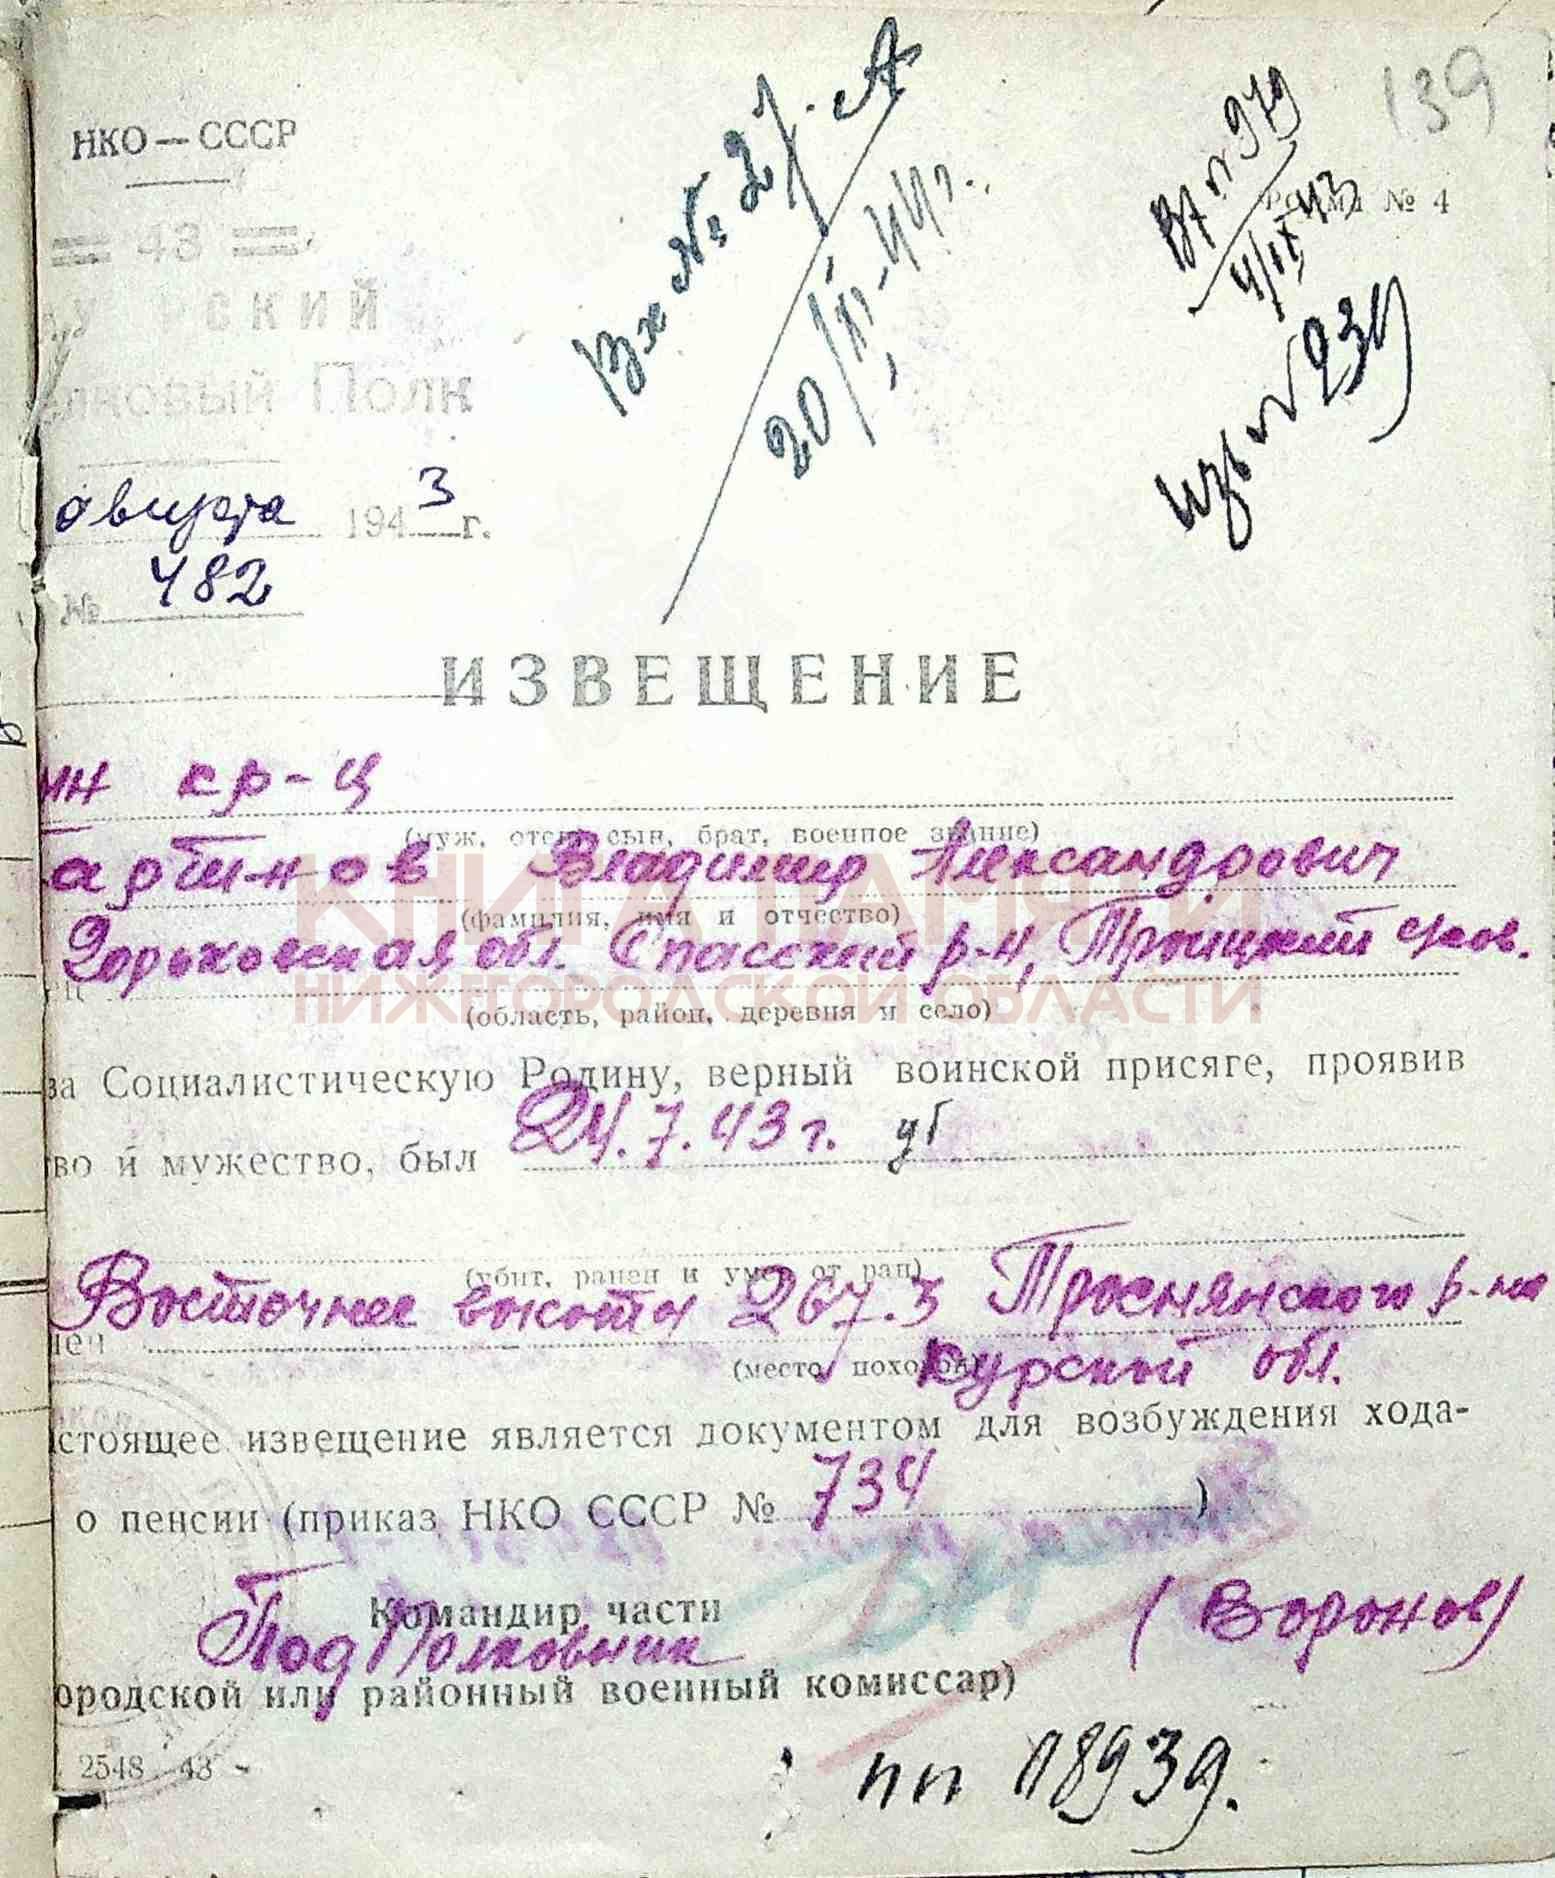 139
Вх № 27-А
20/II-44г.
Вх № 979
4/IX 43
Форма № 4
изв № 239
НКО — СССР
43
ский
лковый Полк
августа 1943 г.
№ 482
ИЗВЕЩЕНИЕ
кр-ц
(муж, отец, сын, брат, военное звание)
артинов Владимир Александрович
(фамилия, имя и отчество)
Горьковская обл. Спасский р-н, Троицкий
(область, район, деревня и село)
за Социалистическую Родину, верный воинской присяге, проявив
во и мужество, был 24.7.43 г. уб
(убит, ранен и умер от ран)
Восточнее высоты 267.3 Троснянского р-на
нен
(место похорон) Курской обл.
стоящее извещение является документом для возбуждения хода-
о пенсии (приказ НКО СССР № 734 )
Командир части
Подполковник (Воронов)
ородской или районный военный комиссар)
2548 43
пп 18939.
КНИГА ПАМЯТИ
НИЖЕГОРОДСКОЙ ОБЛАСТИ